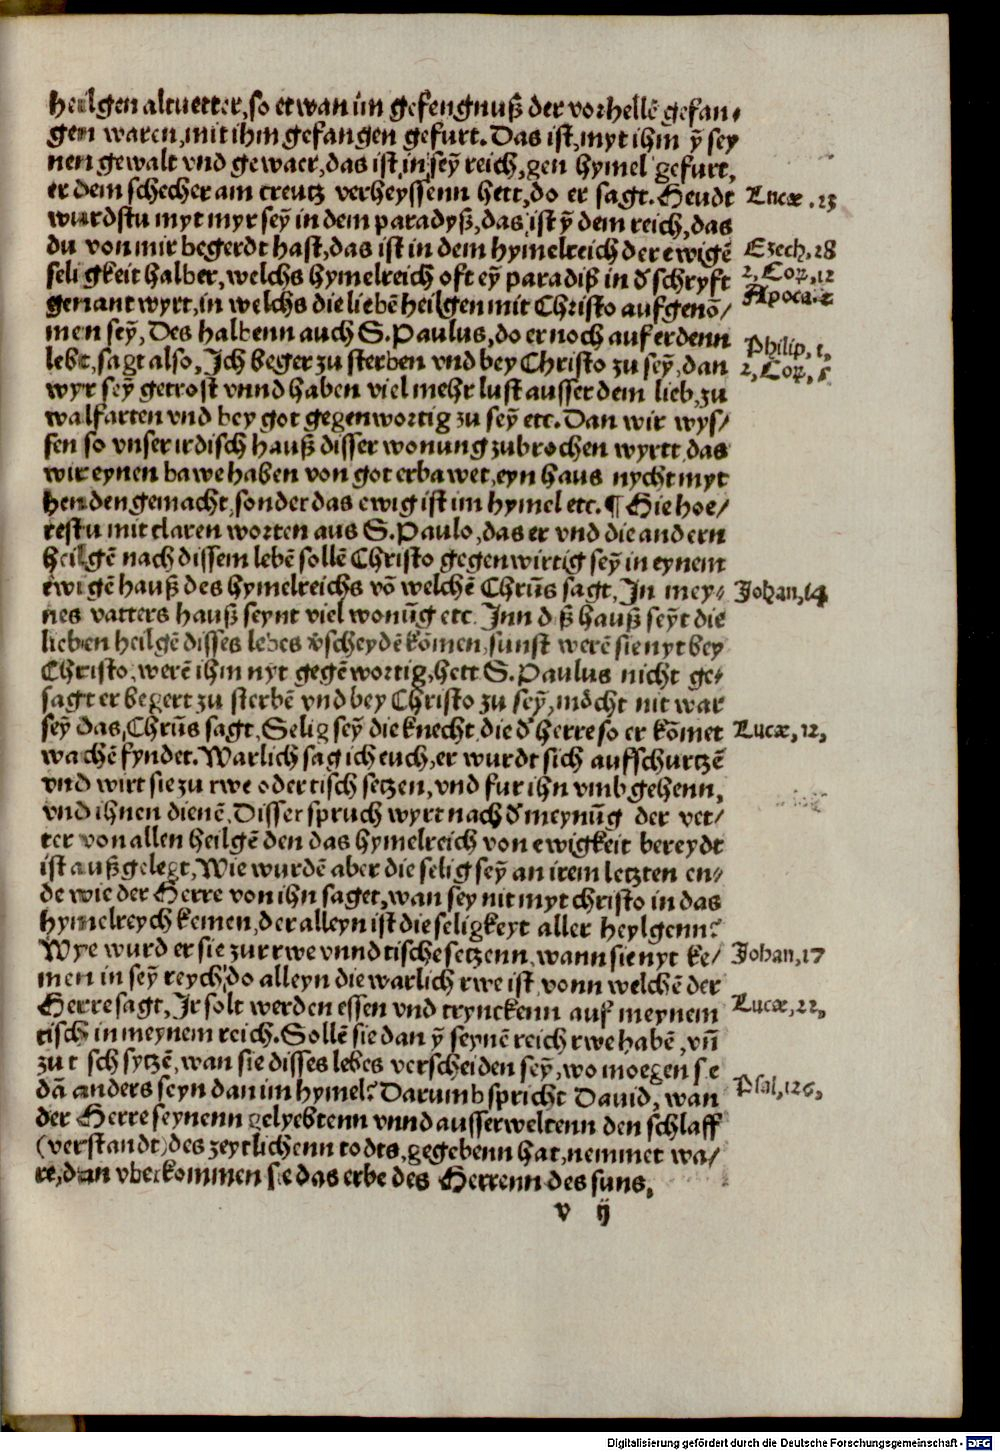 heilgen altuetter, so etwan im gefengnuß der vorhellē gefan⸗
gen waren, mit ihm gefangen gefurt. Das ist, myt ihm ỹ sey
nen gewalt vnd gewaer, das ist, in sey̅ reich, gen hymel gefurt,
er dem schecher am creutz verheyssenn hett, do er sagt. Heudt
wurdstu myt myr sey̅ in dem paradyß, das ist ỹ dem reich, das
du von mir begerdt hast, das ist in dem hymelreich der ewigē
seligkeit halber, welchs hymelreich oft ey̅ paradiß in d̕ schryft
genant wyrt, in welchs die liebē heilgen mit Christo aufgenō/
men sey̅, Des halbenn auch S. Paulus, do er noch auf erdenn
lebt, sagt also, Ich beger zu sterben vnd bey Christo zu sey̅, dan
wyr sey̅ getrost vnnd haben viel mehr lust ausser dem lieb, zu
walfarten vnd bey got gegenwortig zu sey̅ etc. Dan wir wys/
sen so vnser irdisch hauß disser wonung zubrochen wyrtt, das
wir eynen bawe haben von got erbawet, eyn haus nycht myt
henden gemacht, sonder das ewig ist im hymel etc. ¶ Hie hoe/
restu mit claren worten aus S. Paulo, das er vnd die andern
heilgē nach dissem lebē sollē Christo gegenwirtig sey̅ in eynem
ewigē hauß des hymelreichs vō welchē Chrūs sagt, In mey⸗
nes vatters hauß seynt viel wonūg etc. Inn d ß hauß sey̅t die
lieben heilgē disses lebes v̕scheydē kōmen, sunst werē sie nyt bey
Christo, werē ihm nyt gegēwortig, hett S. Paulus nicht ge⸗
sagt er begert zu sterbē vnd bey Christo zu sey̅, möcht nit war
sey̅ das, Chrūs sagt, Selig sey̅ die knecht, die d̕ herre so er kōmet
wachē fyndet. Warlich sag ich euch, er wurdt sich aufschurtzē
vnd wirt sie zu rwe oder tisch setzen, vnd fur ihn vmbgehenn,
vnd ihnen dienē, Disser spruch wyrt nach d̕ meynūg der vet/
ter von allen heilgē den das hymelreich von ewigkeit bereydt
ist außgelegt, Wie wurdē aber die selig sey̅ an irem letzten en⸗
de wie der Herre von ihn saget, wan sey nit myt christo in das
hymelreych kemen, der alleyn ist die seligkeyt aller heylgenn?
Wye wurd er sie zur rwe vnnd tische setzenn, wann sie nyt ke/
men in sey̅ reych, do alleyn die warlich rwe ist, vonn welchē der
Herre sagt, Ir solt werden essen vnd trynckenn auf meynem
tisch in meynem reich. Sollē sie dan ỹ seynē reich rwe habē, vn̄
zu t sch sytzē, wan sie disses lebes verscheiden sey̅, wo moegen s e
dā anders seyn dan im hymel? Darumb spricht Dauid, wan
der Herre seynenn gelyebtenn vnnd ausserweltenn den schlaff
(verstandt) des zeytlichenn todts, gegebenn hat, nemmet wa/
re, dan vberkommen sie das erbe des Herrenn des suns,
v ij
Lucæ. 23
Ezech. 28
2, Cor, 12
Apoca. 2
Philip, 1,
2, Cor, 5
Johan, 14
Lucæ, 12,
Johan, 17
Lucæ, 22,
Psal, 126,
Digitalisierung gefördert durch die Deutsche Forschungsgemeinschaft - DFG